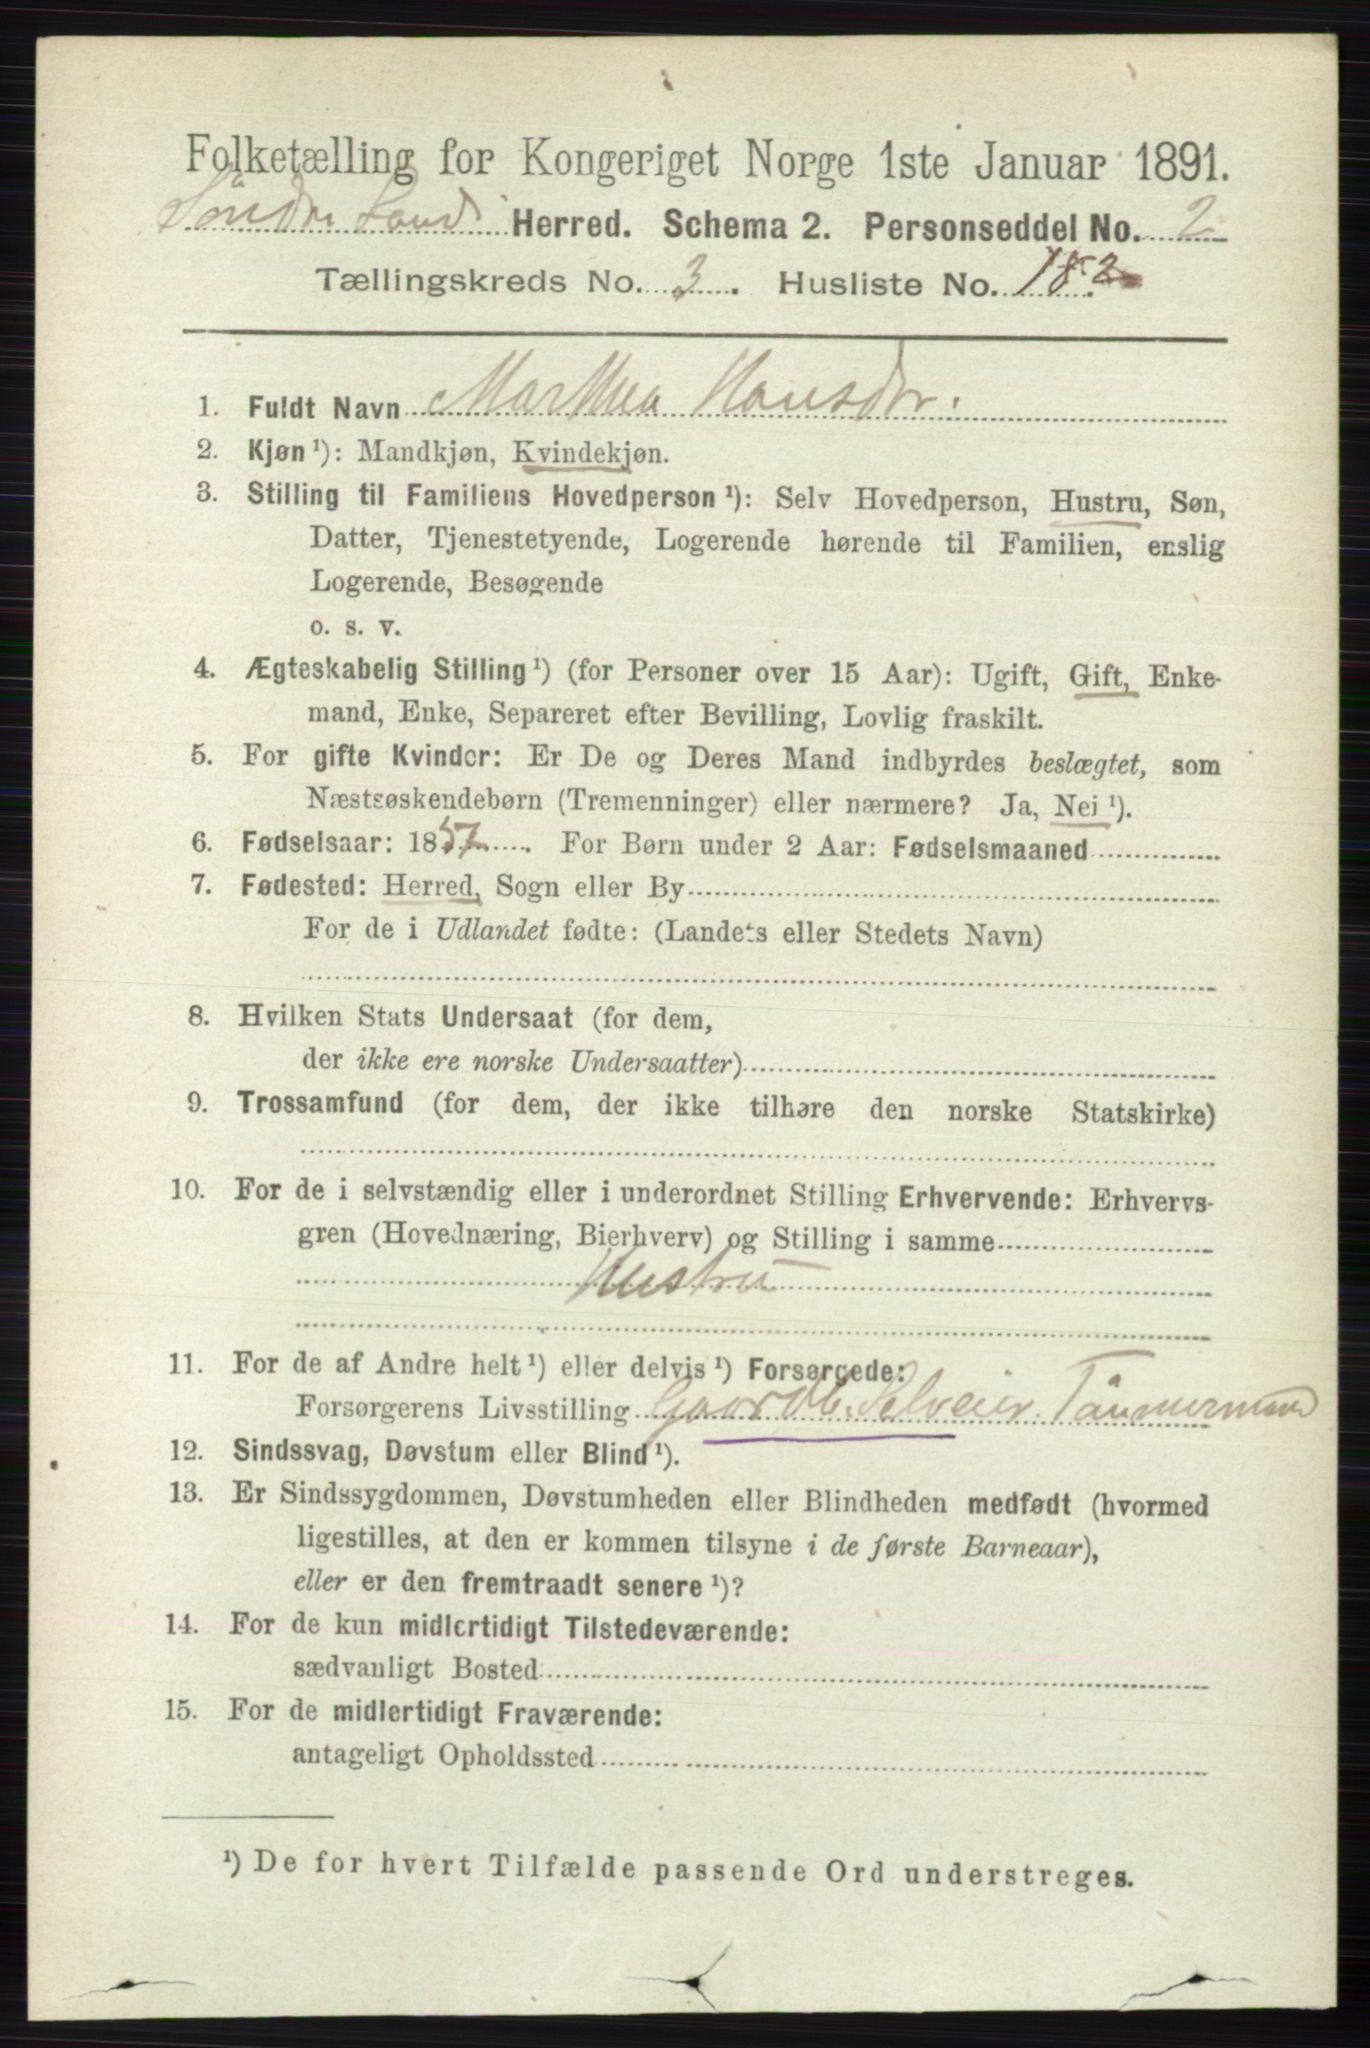 Folketælling for Kongeriget Norge 1ste Januar 1891.
Søndre Land Herred. Schema 2. Personseddel No. 2
Tællingskreds No. 3. Husliste No. 182
1. Fuldt Navn Marthea Hansdr.
2. Kjøn ¹): Mandkjøn, Kvindekjøn.
3. Stilling til Familiens Hovedperson ¹): Selv Hovedperson, Hustru, Søn,
Datter, Tjenestetyende, Logerende hørende til Familien, enslig
Logerende, Besøgende
o. s. v.
4. Ægteskabelig Stilling ¹) (for Personer over 15 Aar): Ugift, Gift, Enke-
mand, Enke, Separeret efter Bevilling, Lovlig fraskilt.
5. For gifte Kvinder: Er De og Deres Mand indbyrdes beslægtet, som
Næstsøskendebørn (Tremenninger) eller nærmere? Ja, Nei ¹).
6. Fødselsaar: 1857. For Børn under 2 Aar: Fødselsmaaned
7. Fødested: Herred, Sogn eller By
For de i Udlandet fødte: (Landets eller Stedets Navn)
8. Hvilken Stats Undersaat (for dem,
der ikke ere norske Undersaatter)
9. Trossamfund (for dem, der ikke tilhøre den norske Statskirke)
10. For de i selvstændig eller i underordnet Stilling Erhvervende: Erhvervs-
gren (Hovednæring, Bierhverv) og Stilling i samme
Hustru
11. For de af Andre helt ¹) eller delvis ¹) Forsørgede:
Forsørgerens Livsstilling Gaardb. Selveier. Tømmermand
12. Sindssvag, Døvstum eller Blind ¹).
13. Er Sindssygdommen, Døvstumheden eller Blindheden medfødt (hvormed
ligestilles, at den er kommen tilsyne i de første Barneaar),
eller er den fremtraadt senere ¹)?
14. For de kun midlertidigt Tilstedeværende:
sædvanligt Bosted
15. For de midlertidigt Fraværende:
antageligt Opholdssted
¹) De for hvert Tilfælde passende Ord understreges.